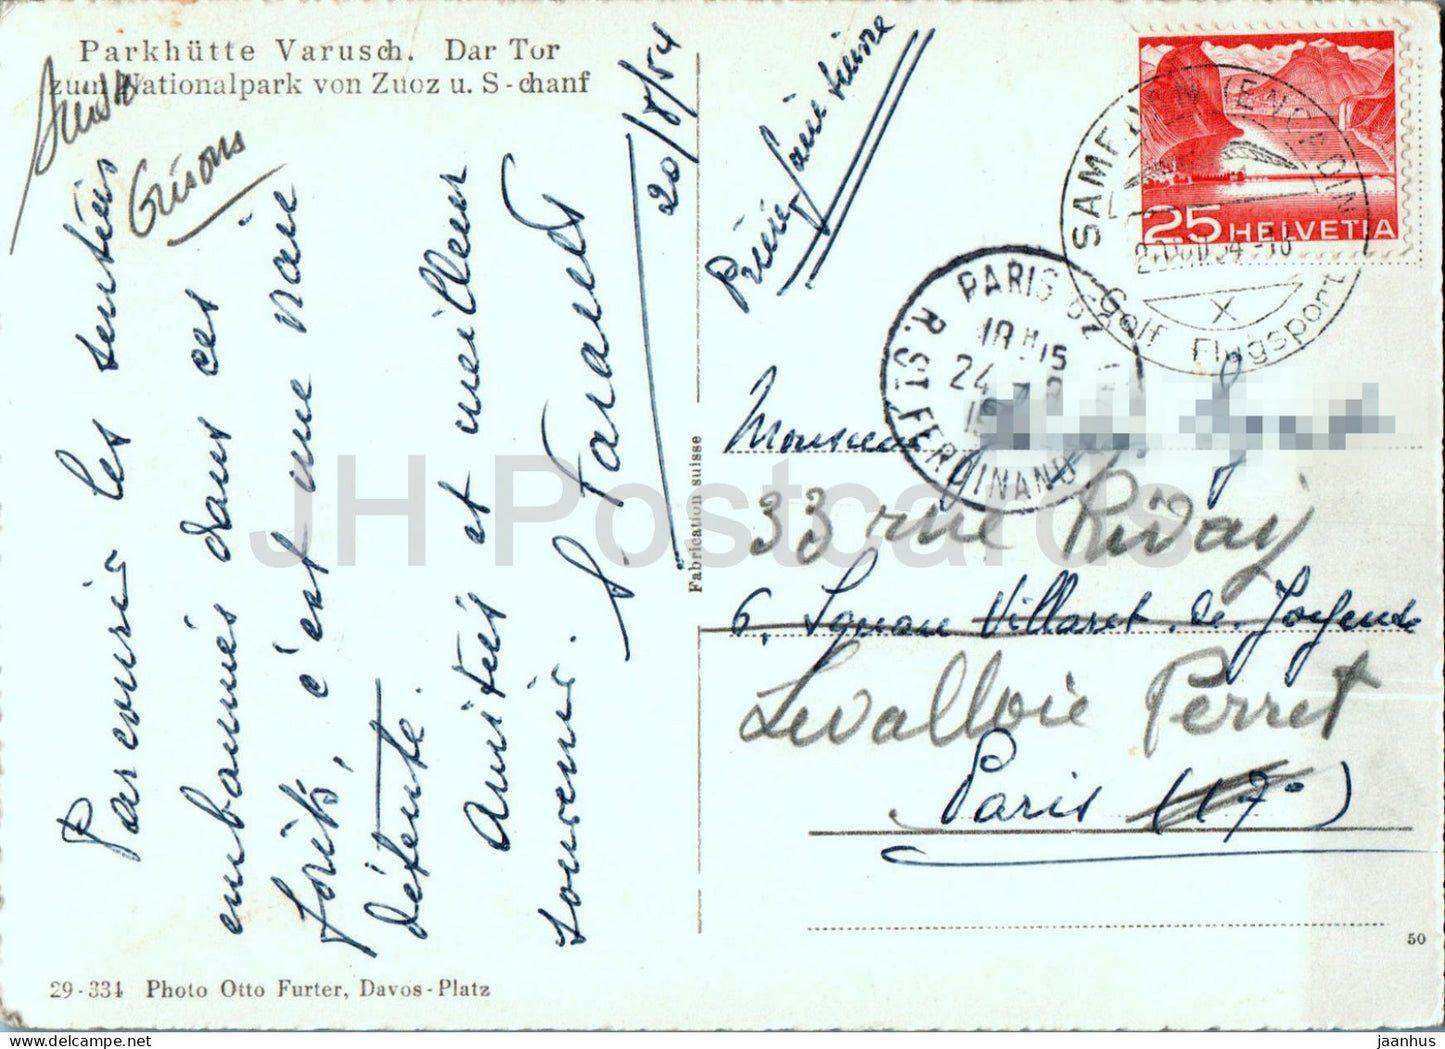 Parkhütte Varusch. Dar Tor
zum Nationalpark von Zuoz u. S-chanf
Suisse
Grisons
Parcourir les sentiers
embaumés dans ces
forêts, c'est une vraie
détente.
Amitiés et meilleur
souvenir.
20/8/54
Prière faire suivre
HELVETIA
25
SAMEDAN (ENGADIN)
Golf Flugsport
PARIS
18H15
24
R. ST FERDINAND
Monsieur
33 rue Rivay
6, Square Villaret de Joyeuse
Levalloie Perret
Paris (17e)
Fabrication suisse
50
29-334 Photo Otto Furter, Davos-Platz
JH Postcards
jaanhus @ delcampe.net